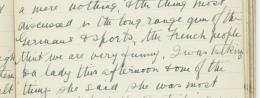 a mere nothing, & the thing most
discussed is the long range gun of the
Germans & sports, the French people
that we are very funny. I was talking
to a lady this afternoon & one of the
things she said she was most